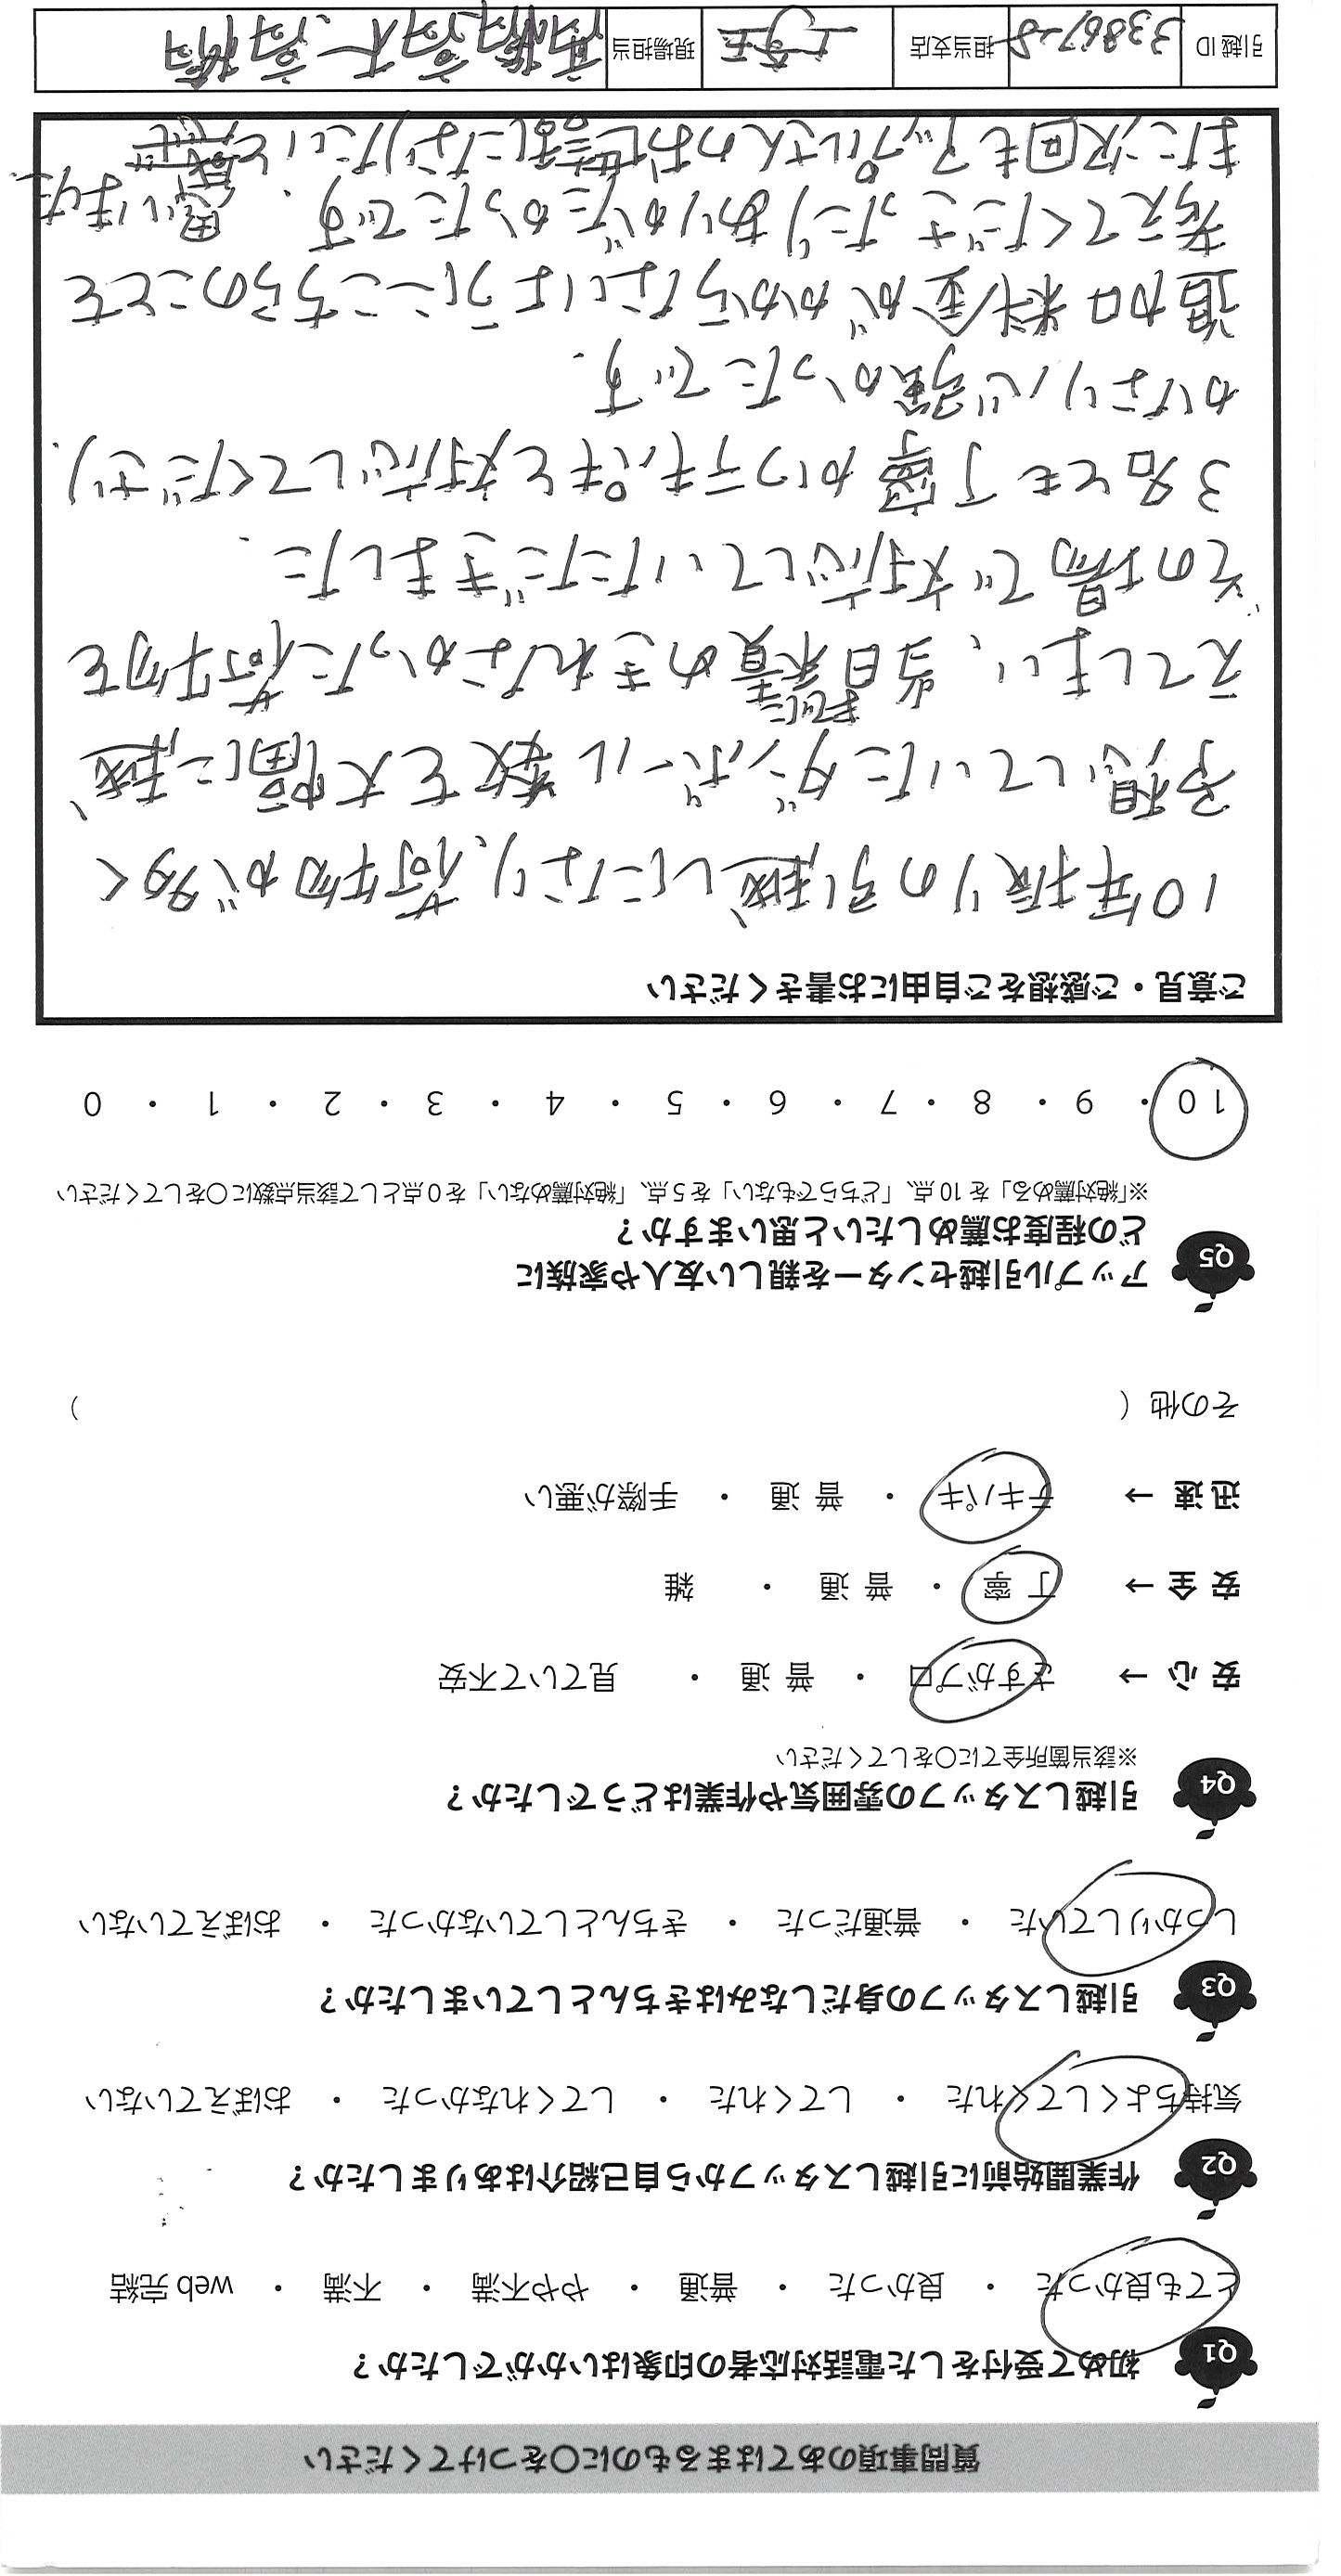 質問事項のあてはまるものに〇をつけてください
Q1 初めて受付をした電話対応者の印象はいかがでしたか？
とても良かった ・ 良かった ・ 普通 ・ やや不満 ・ 不満 ・ web 完結
Q2 作業開始前に引越しスタッフから自己紹介はありましたか？
気持ちよくしてくれた ・ してくれた ・ してくれなかった ・ おぼえていない
Q3 引越しスタッフの身だしなみはきちんとしていましたか？
しっかりしていた ・ 普通だった ・ きちんとしていなかった ・ おぼえていない
Q4 引越しスタッフの雰囲気や作業はどうでしたか？
※該当箇所全てに〇をしてください
安心 → さすがプロ ・ 普通 ・ 見ていて不安
安全 → 丁寧 ・ 普通 ・ 雑
迅速 → テキパキ ・ 普通 ・ 手際が悪い
その他（ ）
Q5 アップル引越センターを親しい友人や家族に
どの程度お薦めしたいと思いますか？
※「絶対薦める」を 10 点、「どちらでもない」を 5 点、「絶対薦めない」を 0 点として該当点数に〇をしてください
10 ・ 9 ・ 8 ・ 7 ・ 6 ・ 5 ・ 4 ・ 3 ・ 2 ・ 1 ・ 0
ご意見・ご感想をご自由にお書きください
10年振りの引越しになり、荷物が多く
予想していたダンボール数を大幅に越
えてしまい、当日までに積めきれなかった荷物を
その場で対応していただきました.
3名とも丁寧かつテキパキと対応してくださり.
かなり心強かったです.
追加料金がかからないようにこちらのことを
考えてくださったりありがたかったです.
また次回もアップルさんのお世話になりたいと
思いました.
引越 ID 338617-8 担当支店 現場担当 高橋